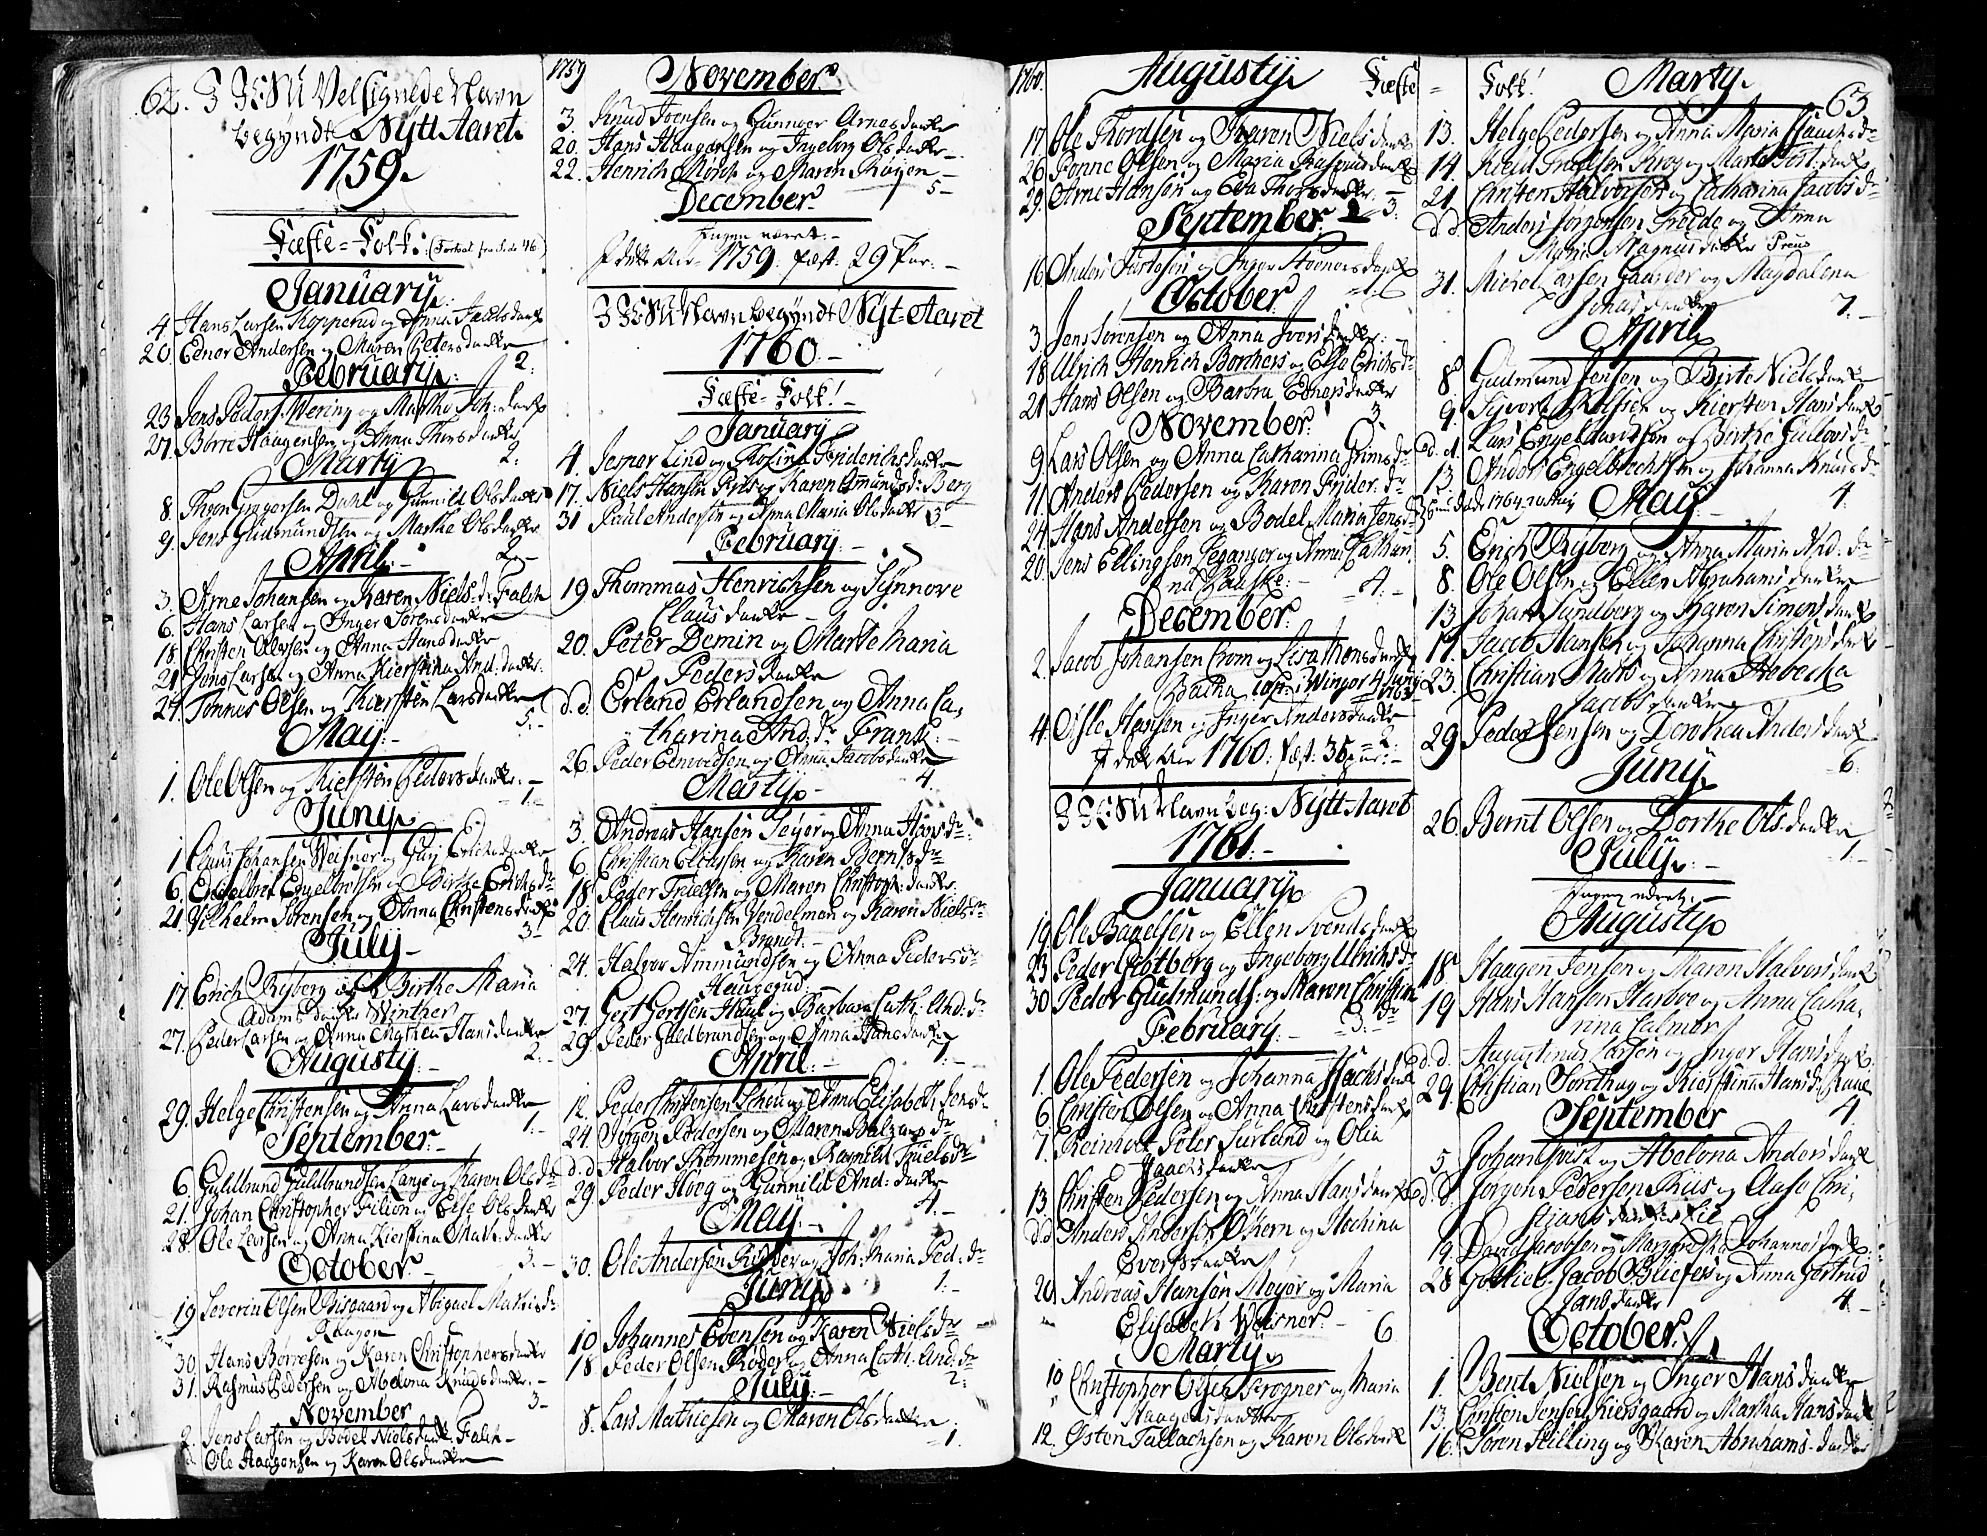 62. I JESU Velsignede Navn
begyndt Nytt Aaret
1759.
Fæste-Folk: (Fortsat fra Side 46)
January:
4. Hans Larsen Kopperud og Anna Jacobsdatter
20. Ednor Andersen og Maren Petersdatter
2:
February:
23 Jens Peders: Wering og Marthe Joh: datter
27. Børre Haagensen og Anna Thorsdatter
2:
Marty
8. Thron Gregersen Dahl og Gunnild Olsdatter
9. Jens Gudmundsen og Marthe Olsdatter
2-
April:-
3. Arne Johansen og Karen Niels: dr Falch
6. Hans Larsen og Inger Sørensdatter
18. Christen Olsen og Anna Hansdatter
21. Jøns Larsen og Anna Kierstina And: datter
24. Tønnes Olsen og Kiersten Larsdatter
5.-
May:-
1. Ole Olsen og Kiersten Pedersdatter: -
1.-
Juny
1 Claus Johansen Weisner og Gury Erichsdatter
6. Engelbret Engelbretsen og Berthe Erichsdr
21. Wilhelm Sørensen og Anna Christensdatter
3-
July-
17. Erich Ryberg og Berthe Maria
Adamsdatter Wintner
27. Peder Larsen og Anna Margrethe Hansdatter
2:-
Augusty:-
29. Helge Christensen og Anna Larsdatter
1:-
September:-
6. Guldbrand Guldbrandsen Lange og Karen Olsdr
21. Johan Christopher Filion og Else Olsdatter
28. Ole Larsen og Anna Kierstina Math: datter
3.-
October.-
19 Severin Olsen Bisgaard og Abigael Mathisdr
30. Hans Børresen og Karen Christophersdatter
31. Rasmus Pedersen og Abelona Knudsdatter. -
3-
November
2. Jens Larsen og Bodel Nielsdatter Falch-
Ole Haagensen og Karen Olsdatter
1759 November.
3. Knud Joensen og Gunnoer Arnesdatter
20. Hans Haagensen og Ingeborg Olsdatter -
22. Henrich Morup og Maren Røyen -
5-
December.
Ingen været:-
I dette Aar 1759. fæst: 29 Par: -
I JESU Navn begyndt Nyt-Aaret
1760.-
Fæste-Folk! -
January
4. Jesper Lind og Rosina Friderichsdatter
17. Niels Hansen Friis og Karen Asmunds: Berg
31 Paul Andersen og Anna Maria Olsdatter 3-
February:-
19 Thommas Henrichsen og Synnove
Clausdatter -
20. Peter Demin og Marte Maria
Pedersdatter
d.d. Erland Erlandsen og Anna Ca-
tharina And: dr Frantz.-
26. Peder Edmundsen og Anna Jacobsdatter
4.
Marty.-
3. Andreas Hansen Seyer og Anna Hansdr:
6. Christian Clausen og Karen Berntsdr
18. Peder Truelsen og Maren Christoph: datter.
20. Claus Henrichsen Vendelman og Karen Nielsdr
Brandt.-
24. Halvor Ammundsen og Anna Pedersdr
Haugerud.-
27. Gert Gertsen Haal og Barbara Cath: And: dr
29. Peder Guldbrandsen og Anna Hansdatter
7.-
April.-
12. Peder Christensen Schou og Anna Elisabeth Jensdr
24. Jørgen Pedersen og Maren Balzersdr
d.d Halvor Thommesen og Ragnild Truelsdr
29. Peder Hoeg og Gunnild And: datter
4.-
May.-
30. Ole Andersen Ridder og Joh: Maria Ped: dr
1.-
Juny
10 Johannes Evensen og Karen Nielsdr
18 Peder Olsen Røder og Anna Cath: And: dr
2:
July.-
8. Lars Mathiesen og Maren Olsdatter
1.
1760. Augusty Fæste =
17. Ole Thordsen og Karen Nielsdatter
26 Ponne Olsen og Maria Rasmusdatter
29. Arne Hansen og Eva Thorsdatter
3:
September.
16 Anders Justesen og Inger Steenersdatter
1.
October
3. Jens Sørensen og Anna Iversdatter. -
18 Ulrich Henrich Borchers og Else Erichsdr
21 Hans Olsen og Barbra Ednersdatter
3.
November:
9 Lars Olsen og Anna Catharina Grimsdr
11. Anders Pedersen og Karen Frider: dr
24 Hans Andersen og Bodel Maria Jensdr
20. Jens Ellingsen Leganger og Anna Cathari-
na Bauske:- 4:-
December:
2. Jacob Johansen Crom og Lisa Thonsdatter
Winger 4 Juny 1763
4. Oisle Hansen og Inger Andersdatter
2:-
I dette Aar 1760. fæst: 35 par:-
I JESU Navn beg: Nytt-Aaret
1761.-
January
19 Ole Bandsen og Ellen Svendsdatter
23 Peder Grotberg og Ingeborg Ulrichsdr
30 Peder Gudmunds: og Maren Christian
3.- dr
February.-
1. Ole Pedersen og Johanna Isachsdatter
6 Christen Olsen og Anna Christensdatter
7. Reinholt Peter Surland og Olia
Isachsdatter
13. Christen Pedersen og Anna Hansdatter
d.d Anders Andersen Økern og Mechina
Evertsdatter
20 Andreas Hansen Meyer og Maria
Elisabeth Weisner.- 6
Marty
10 Christopher Olsen Frogner og Maria
Haagensdatter
12. Østen Tallachsen og Karen Olsdatter
Folk! Marty. 63
13. Helge Pedersen og Anna Maria Isachsdr
14. Kield Truelsen Krog og Marte Jost. datter
21 Christen Halvorsen og Catharina Jacobsdr
d.d. Anders Jørgensen Frede og Anna
Maria Magnusdatter Preus
31. Michel Larsen Gaarder og Magdalena
Jonasdatter 7.-
April
8 Gudmund Jensen og Birte Nielsdatter
9. Syvert Rolfsen og Kiersten Hansdatter
d.d. Lars Engelbrechtsen og Berthe Gulovsdr
13 Anders Engelbrechtsen og Johanna Knudsdr
4.
May.
5. Erich Ryberg og Anna Maria And: dr
8. Ole Olsen og Ellen Abrahamsdatter
13 Johan Sundberg og Karen Simensdatter
14. Jacob Hansen og Johanna Christensdatter
23. Christian Mats og Anna Rebecka
Jacobsdatter
29 Peder Jensen og Dorthea Andersdatter
6:
Juny
26. Bernt Olsen og Dorthe Ols:datter
1.-
July.-
Ingen været.-
Augusty
18. Haagen Jensen og Maren Halvorsdatter
19 Hans Hansen Harboe og Anna Catha-
rina Calmer
d.d. Augustinus Larsen og Inger Hansdatter
29. Christian Sonthag og Kierstina Hansdr Raae
4
September
5. Johan Qvist og Abelona Andersdatter
d.d. Jørgen Pedersen Riis og Aase Chri-
stiansdatter Lie
19. David Jacobsen og Margrethe Johannesdatter
28 Gottlieb Jacob Bliefer og Anna Gertrud
Jansdatter 4.-
October.
1. Bent Nielsen og Inger Hansdatter
13. Christen Jensen Kiersgaard og Martha Hansdatter
16. Søren Skilling og Karen Abrahams-datter